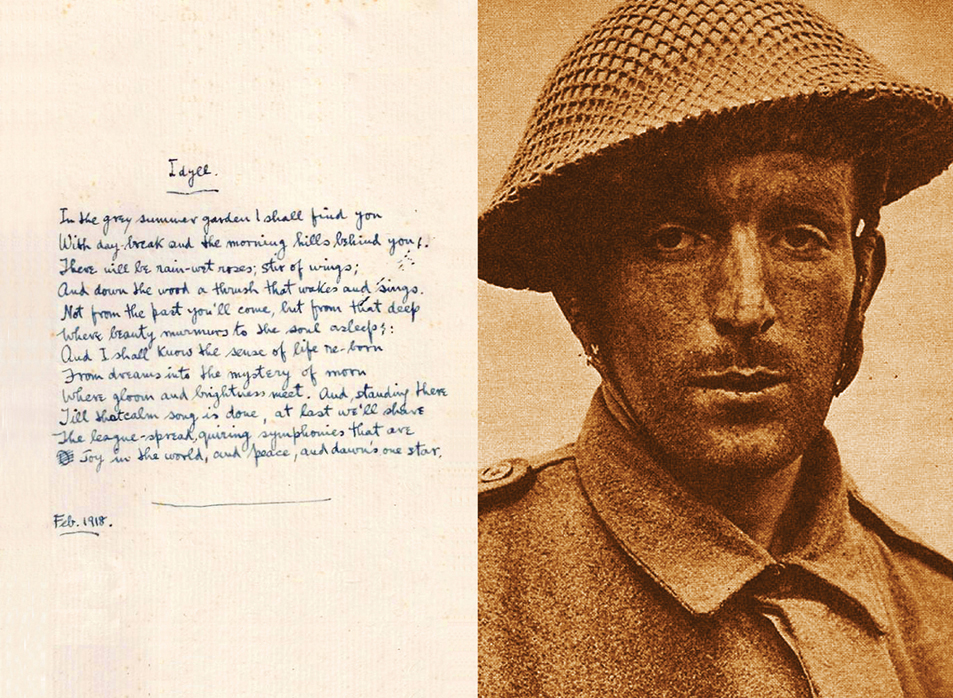 Idyll.
In the grey summer garden I shall find you
With day-break and the morning hills behind you.
There will be rain-wet roses; stir of wings;
And down the wood a thrush that wakes and sings.
Not from the past you'll come, but from that deep
Where beauty murmurs to the soul asleep:
And I shall know the sense of life re-born
From dreams into the mystery of morn
Where gloom and brightness meet. And standing there
Till that calm song is done, at last we'll share
The league-spread, quiring symphonies that are
Joy in the world, and peace, and dawn's one star.
Feb. 1918.